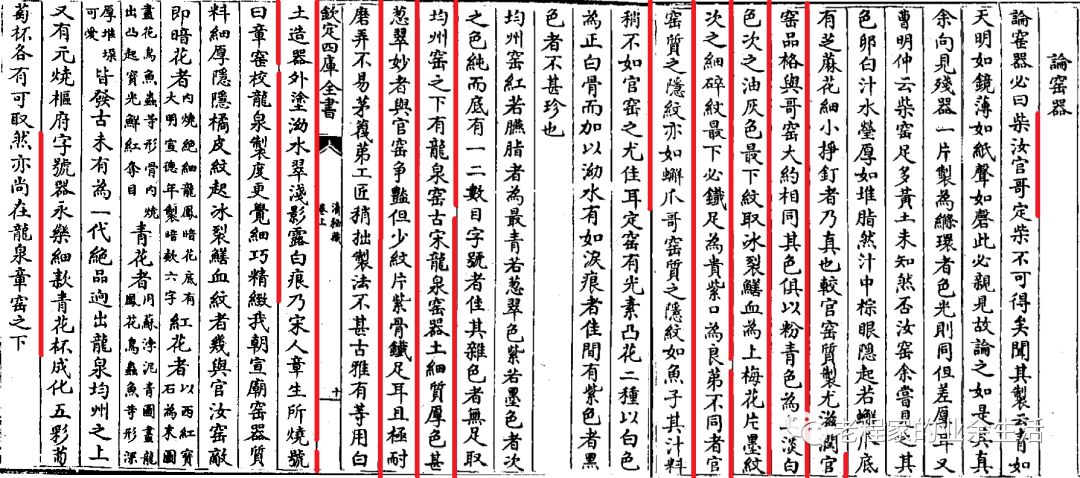 論窑器
論窑器必曰柴汝官哥定柴不可得矣聞其製云青如
天明如鏡薄如紙聲如磬此必親見故論之如是其真
余向見殘器一片製為絛環者色光則同但差厚耳又
曹明仲云柴窑足多黄土未知然否汝窑余嘗見之其
色卵白汁水瑩厚如堆脂然汁中棕眼隱起若蠏爪底
有芝蔴花細小掙釘者乃真也較官窑質製尤滋潤官
窑品格與哥窑大約相同其色俱以粉青色為上淡白
色次之油灰色最下紋取冰裂鱔血為上梅花片墨紋
次之細碎紋最下必鐵足為貴紫口為良第不同者官
窑質之隱紋亦如蠏爪哥窑質之隱紋如魚子其汁料
稍不如官窑之尤佳耳定窑有光素凸花二種以白色
為正白骨而加以泑水有如淚痕者佳間有紫色者黒
色者不甚珍也
均州窑紅若臙脂者為最青若葱翠色紫若墨色者次
之色純而底有一二數目字號者佳其雜色者無足取
均州窑之下有龍泉窑古宋龍泉窑器土細質厚色甚
葱翠妙者與官窑争豔但少紋片紫骨鐵足耳且極耐
磨弄不易茅蔑第工匠稍拙製法不甚古雅有等用白
欽定四庫全書
清秘藏
卷上
十
土造器外塗泑水翠淺影露白痕乃宋人章生所燒號
曰章窑校龍泉製度更覺細巧精緻我朝宣廟窑器質
料細厚隱隱橘皮紋起冰裂鱔血紋者幾與官汝窑敵
即暗花者内燒絶細龍鳳暗花底有大明宣德年製暗款六字紅花者以西紅寳石為末圖
畫花鳥魚蟲等形骨内燒出凸起寳光鮮紅奪目青花者用蘇浡泥青圖畫龍鳳花鳥蟲魚等形深
厚堆垜可愛皆發古未有為一代絶品逈出龍泉均州之上
又有元燒樞府字號器永樂細款青花杯成化五彩葡
萄杯各有可取然亦尚在龍泉章窑之下
老程家的业余生活